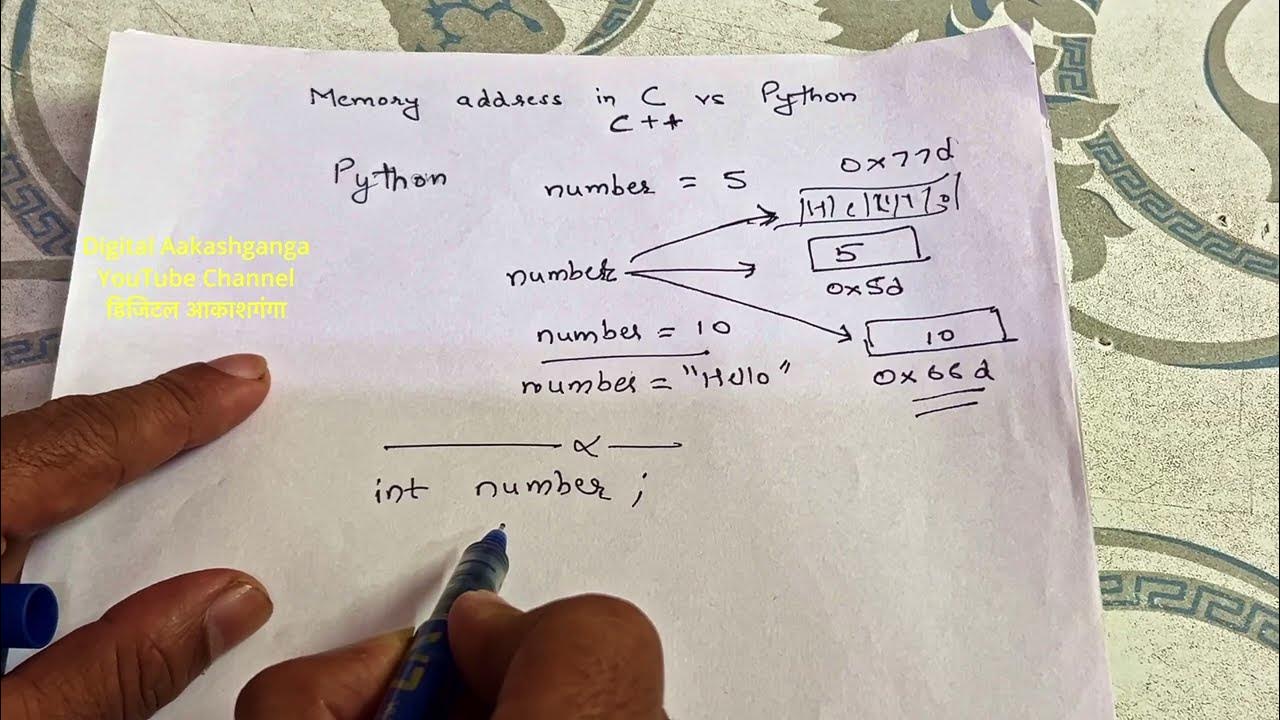 Memory address in C vs Python
C++
Python
number = 5
0x77d
H e l l o
number
5
0x5d
number = 10
10
number = "Hello"
0x66d
int number ;
Digital Aakashganga
YouTube Channel
डिजिटल आकाशगंगा